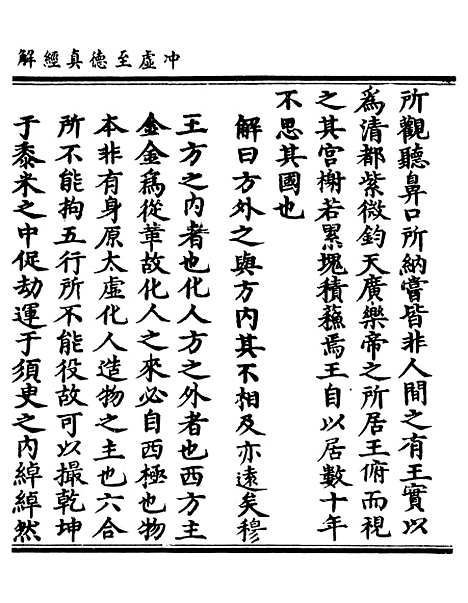 冲虛至德真經解
所觀聽鼻口所納嘗皆非人間之有王實以
爲清都紫微鈞天廣樂帝之所居王俯而視
之其宮榭若累塊積蘓焉王自以居數十年
不思其國也
解曰方外之與方內其不相及亦遠矣穆
王方之內者也化人方之外者也西方主
金金爲從革故化人之來必自西極也物
本非有身原太虛化人造物之主也六合
所不能拘五行所不能役故可以撮乾坤
于黍米之中促劫運于須臾之內綽綽然